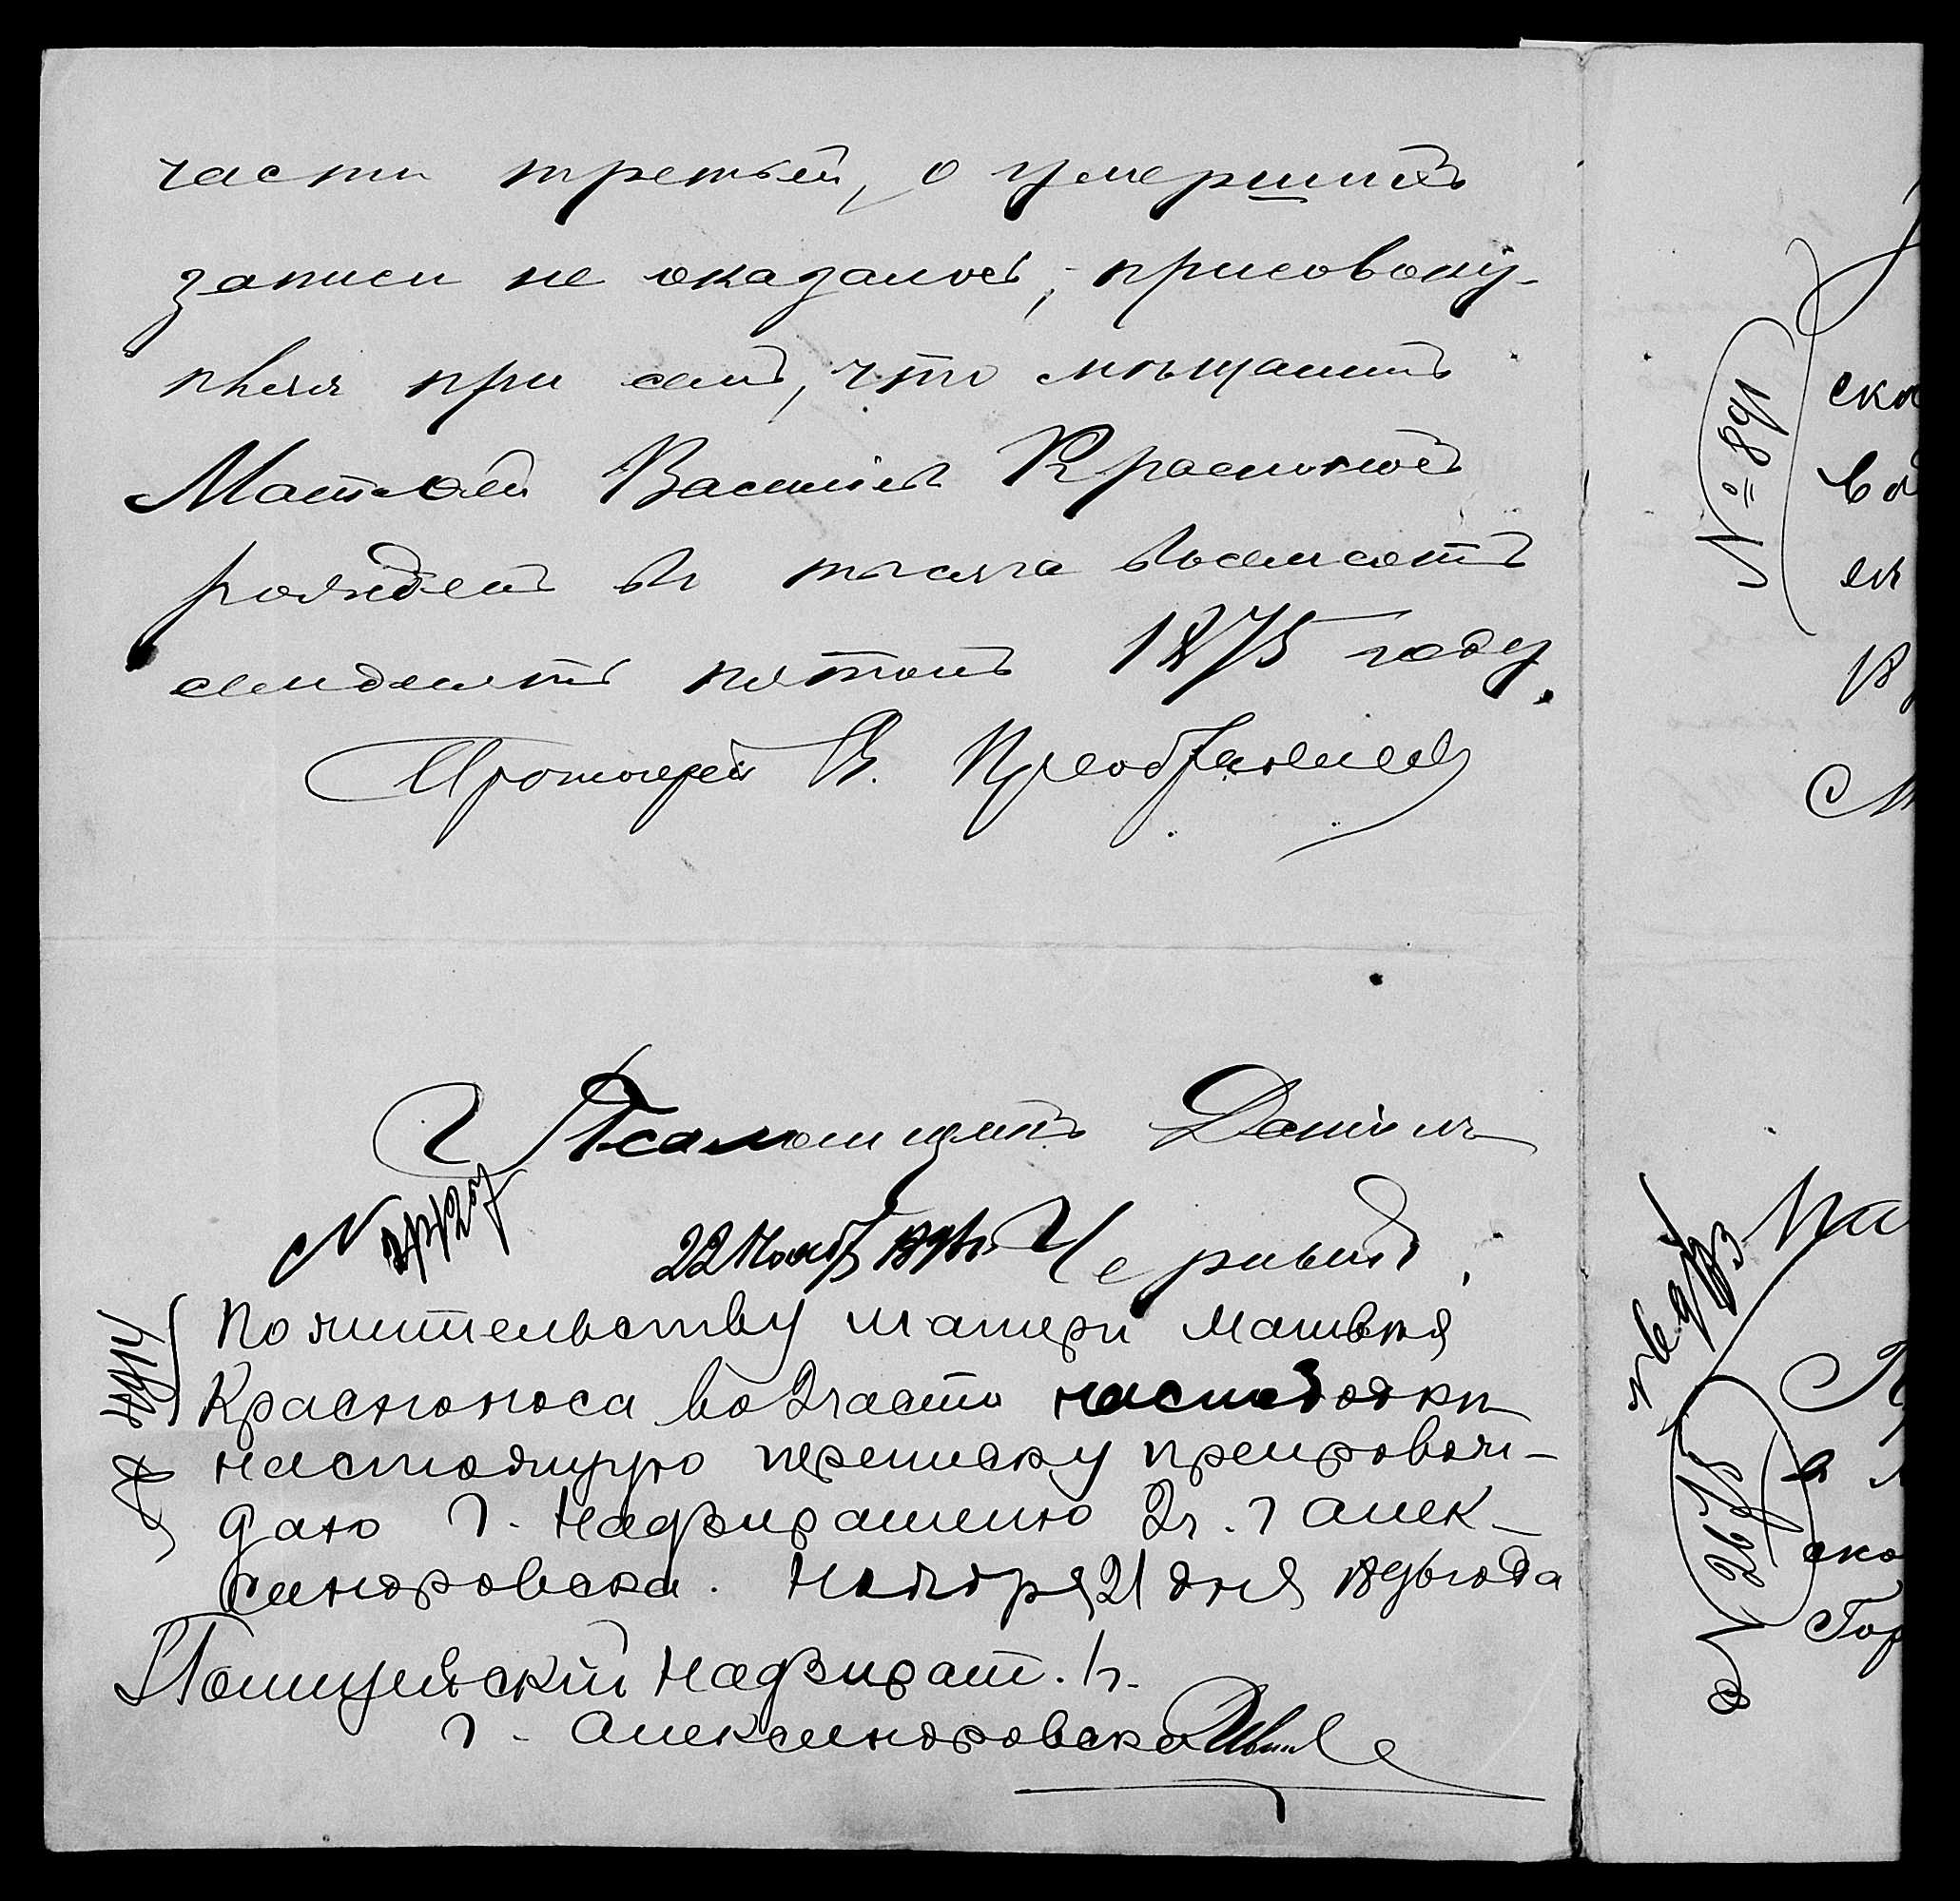 части третьей, о умершихъ
записи не оказалось, присовоку-
пляя при семъ, что мѣщанинъ
Матвѣй Васильевъ Красноносъ
рожденъ въ тысяча восемьсотъ
семьдесятъ пятомъ 1875 году.
Протоіерей В. Преображенскій
Псаломщикъ Даніилъ
22 Нояб
Черный.
По жительству матери Матвѣя
Красноноса во 2 части
настоящую переписку препровож-
даю г. Надзирателю 2 ч. г. Алек-
сандровска. Ноября 21 дня 1896 года
Полицейскій Надзират. 1 ч.
г. Александровска
№ 891
ско